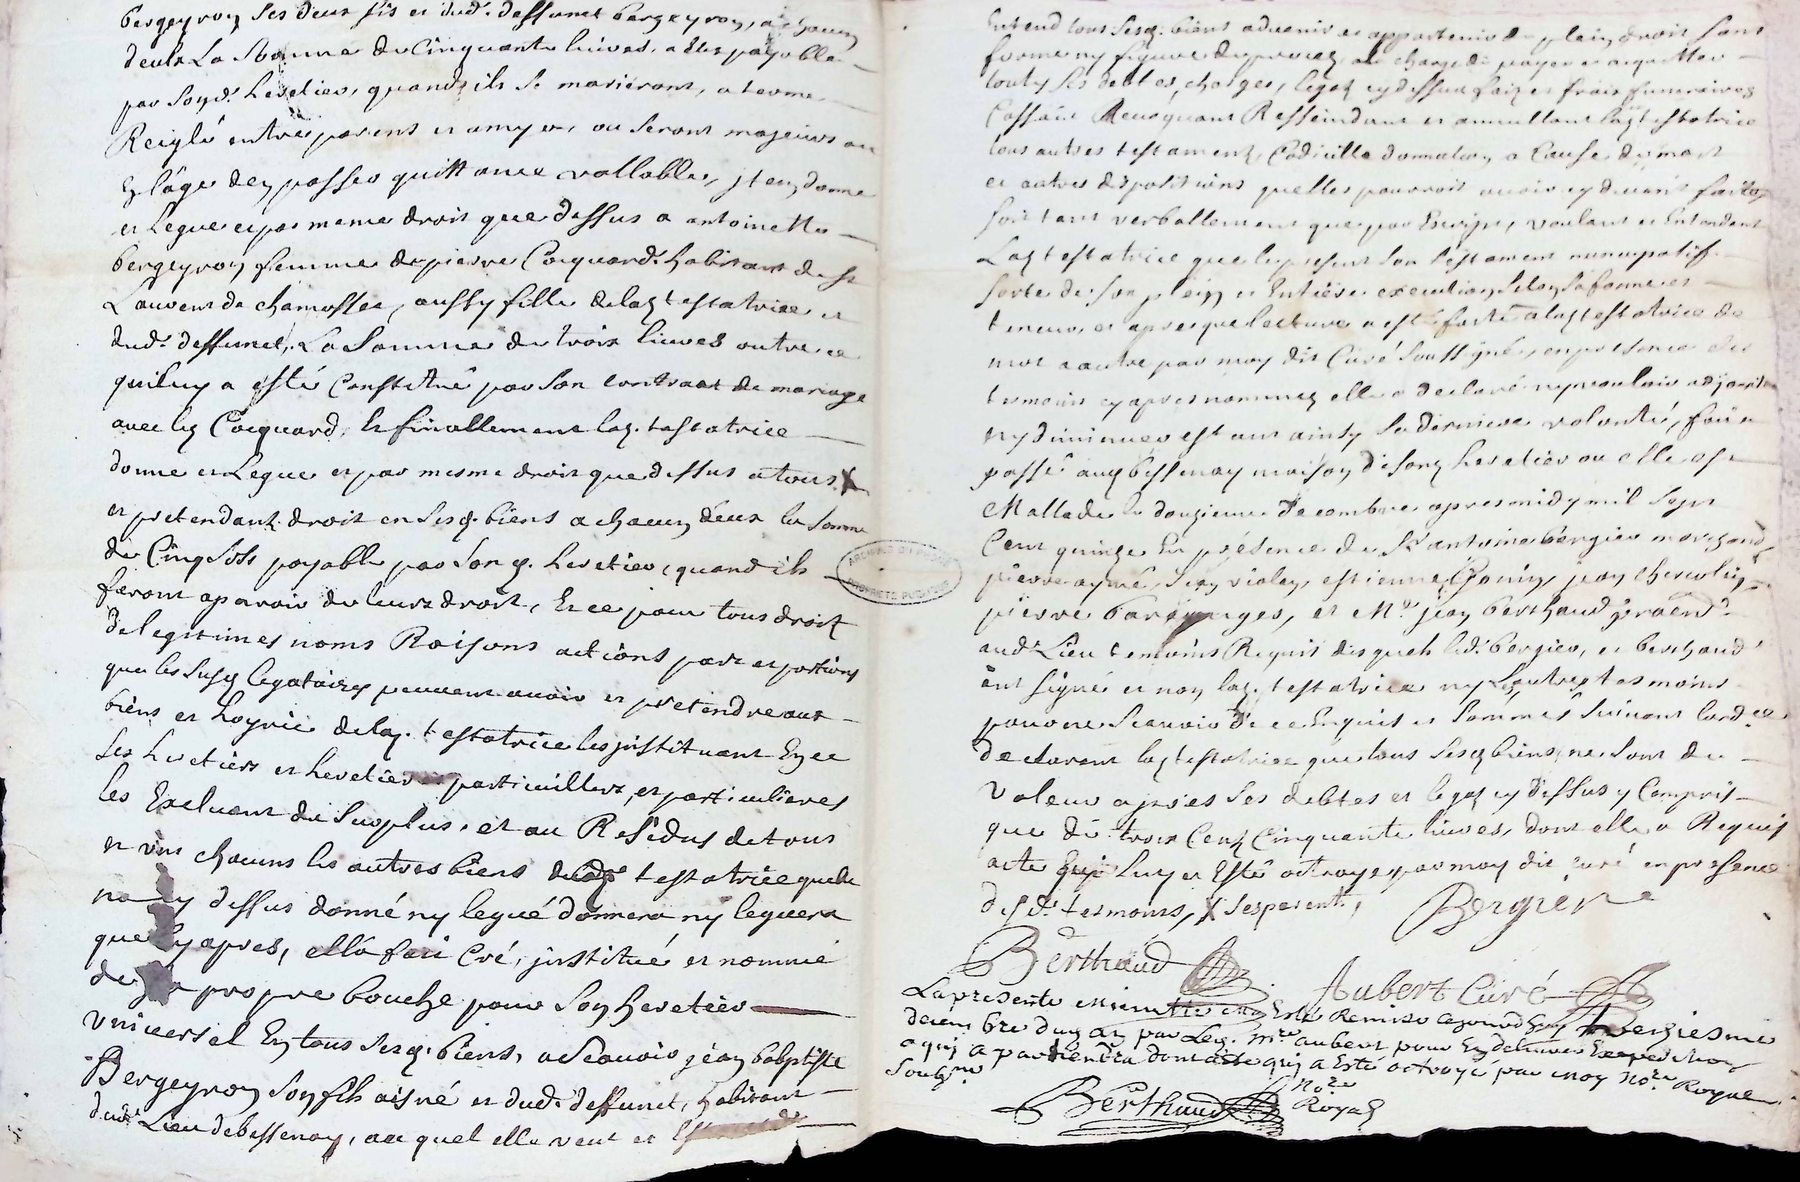 bergeyron ses deux fils et dud. deffunct bergeyron, a chacun
deulx La Somme de Cinquante livres, a Eux payable
par sond. heretier, quand ils se marieront, a terme
Reiglé entre parens et amys, ou seront majeurs ou
En l'age d'en passer quittance vallable, jtem donne
et Legue et par meme droit que dessus a antoinette
bergeyron femme de pierre Cocquard habitant de St
Laurent de chamosset, aussy fille de lad. testatrice et
dud. deffunct, La Somme de trois livres outre ce
qui luy a esté Constitué par son contract de mariage
avec led. Cocquard, Et finallement lad. testatrice
donne et Legue et par mesme droit que dessus a tous X
et pretendant droit en sesd. biens a chacun d'eux la somme
de Cinq sols payable par sond. heretier, quand ils
feront aparoir de leurs droit, Et ce pour tous droit
de legitimes noms Raisons actions part et portions
que les susd. legataires peuvent avoir et pretendre aux
biens et hoyrie de lad. testatrice les jnstituant En ce
ses heretiers et heretieres particuilliers, et particulieres
les Excluant du surplus, et au Residus de tous
et uns chacuns les autres biens de lad. testatrice quelle
na cy dessus donné ny legué donnera ny leguera
que cy apres, ella fait Cré, jnstitué et nommé
de sa propre bouche pour son heretier
universel En tous sesd. biens, a Scavoir jean baptiste
Bergeyron son fils aisné et dud. deffunct, habitant
dud. Lieu de bessenay, au quel elle veut et
Entend tous sesd. biens advenir et appartenir de plain droit sans
forme ny figure de procez, a la charge de payer et acquitter
touts ses debtes, charges, legatz cy dessus faitz et frais funeraires
Cassant Revoquant Resseindant et annullant lad. testatrice
tous autres testament, Codicille donnation a Cause de mort
et autres dispositions quelles pourroit avoir cy devant faites
soit tant verballement que par Escript, voulant et Entendant
Lad. testatrice que le present son testament nuncupatif
sorte de son plein et Entiere execution selon sa forme et
teneur, et apres que lecture a esté faite a lad. testatrice de
mot a autre par moy dit Curé soussigné, en presence des
temoins cy apres nommez elle a declaré ny vouloir adjouter
ny diminuer estant ainsy sa derniere volonté, fait et
passé aud. bessenay maison de son heretier ou elle est
Mallade le douzieme decembre apres midy mil sept
Cent quinze En présence de Sr antoine bergier marchand,
pierre aymé, jean violay, estienne Gonin, jean
pierre et Me jean berthaud
aud. Lieu temoins Requis desquels led. bergier, et berthaud
ont signé et non lad. testatrice ny Les autres tesmoins
pour ne scavoir de ce Enquis et sommés suivant lord.ce
declarant lad. testatrice que tous sesd. biens, ne sont de
valeur apres ses debtes et legatz cy dessus y Compris
que de trois Cent Cinquante livres, dont elle a Requis
acte qui Luy a Esté octroyé par moy dit curé en presence
desd. tesmoins, X ses parent,
Bergier
Berthaud
Aubert Curé
La presente minutte ma Esté Remise ce jourdhuy treziesme
décembre dud. an par Led. Mre aubert pour En delivrer Expedition
a qui apartiendra dont acte qui a Esté octroyé par moy Nore Royal
soubsné
Berthaud Nore
Royal
ARCHIVES DU RHONE
PROPRIETE PUBLIQUE